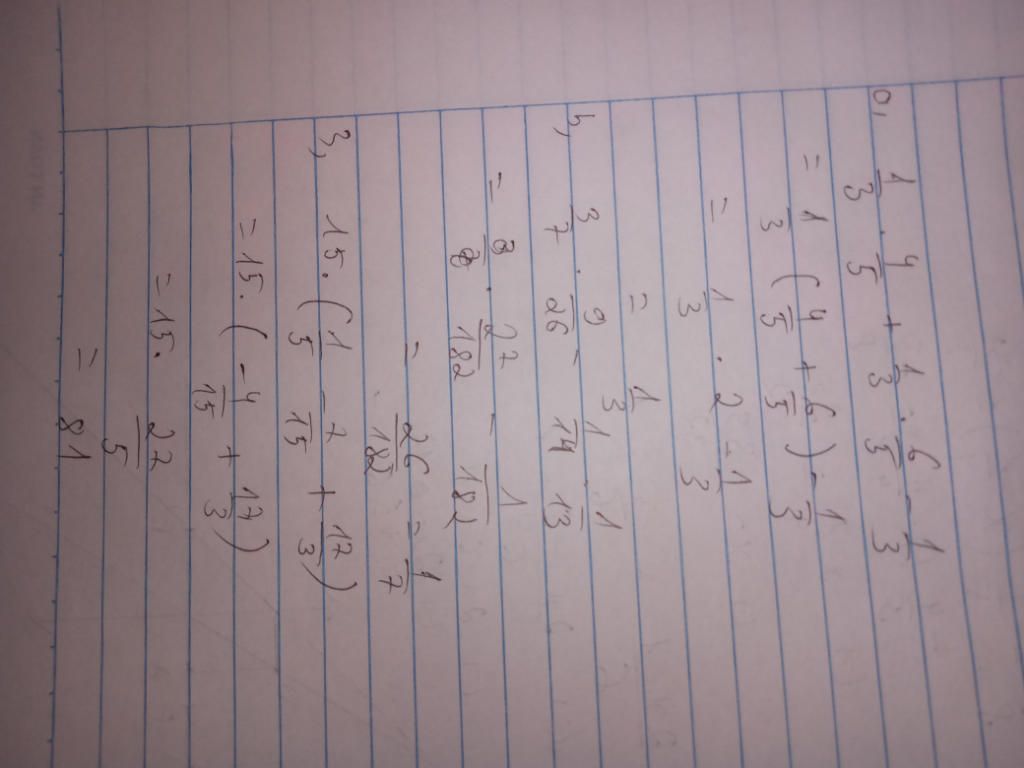 a, 1/3 . 4/5 + 1/3 . 6/5 - 1/3
= 1/3 (4/5 + 6/5) - 1/3
= 1/3 . 2 - 1/3
= 1/3
b, 3/7 . 9/26 - 1/14 . 1/13
= 27/182 - 1/182
= 26/182 = 1/7
3, 15 . (1/5 - 7/15 + 17/3)
= 15 . (-4/15 + 17/3)
= 15 . 27/5
= 81